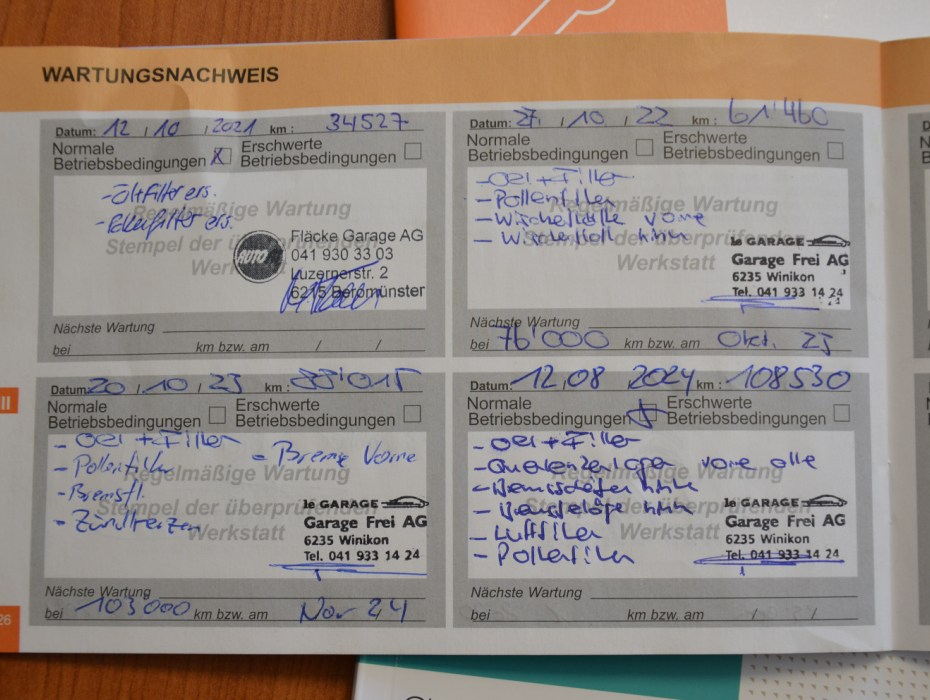 WARTUNGSNACHWEIS
Datum: 12 / 10 / 2021 km : 34527
Normale Betriebsbedingungen X Erschwerte Betriebsbedingungen
- Ölfilter ers.
- Pollenfilter ers.
Regelmäßige Wartung
Stempel der überprüfenden
Werkstatt
AUTO
Fläcke Garage AG
041 930 33 03
Luzernerstr. 2
6215 Beromünster
Nächste Wartung
bei km bzw. am / /
Datum: 27 / 10 / 22 km : 61'460
Normale Betriebsbedingungen Erschwerte Betriebsbedingungen
- Oel + Filter
- Pollenfilter
- Wischerblätter vorne
- Wischerblatt hinten
Regelmäßige Wartung
Stempel der überprüfenden
Werkstatt
le GARAGE
Garage Frei AG
6235 Winikon
Tel. 041 933 14 24
Nächste Wartung
bei 76'000 km bzw. am Okt. 23
Datum: 20 / 10 / 23 km : 88'015
Normale Betriebsbedingungen Erschwerte Betriebsbedingungen
- Oel + Filter
- Pollenfilter
- Bremsfl.
- Zündkerzen
- Bremse Vorne
Regelmäßige Wartung
Stempel der überprüfenden
Werkstatt
le GARAGE
Garage Frei AG
6235 Winikon
Tel. 041 933 14 24
Nächste Wartung
bei 103000 km bzw. am Nov 24
Datum: 12.08 2024 km : 108530
Normale Betriebsbedingungen Erschwerte Betriebsbedingungen
- Oel + Filter
- vorne alle
- hinten
- hinten
- Luftfilter
- Pollenfilter
Regelmäßige Wartung
Stempel der überprüfenden
Werkstatt
le GARAGE
Garage Frei AG
6235 Winikon
Tel. 041 933 14 24
Nächste Wartung
bei km bzw. am / /
26